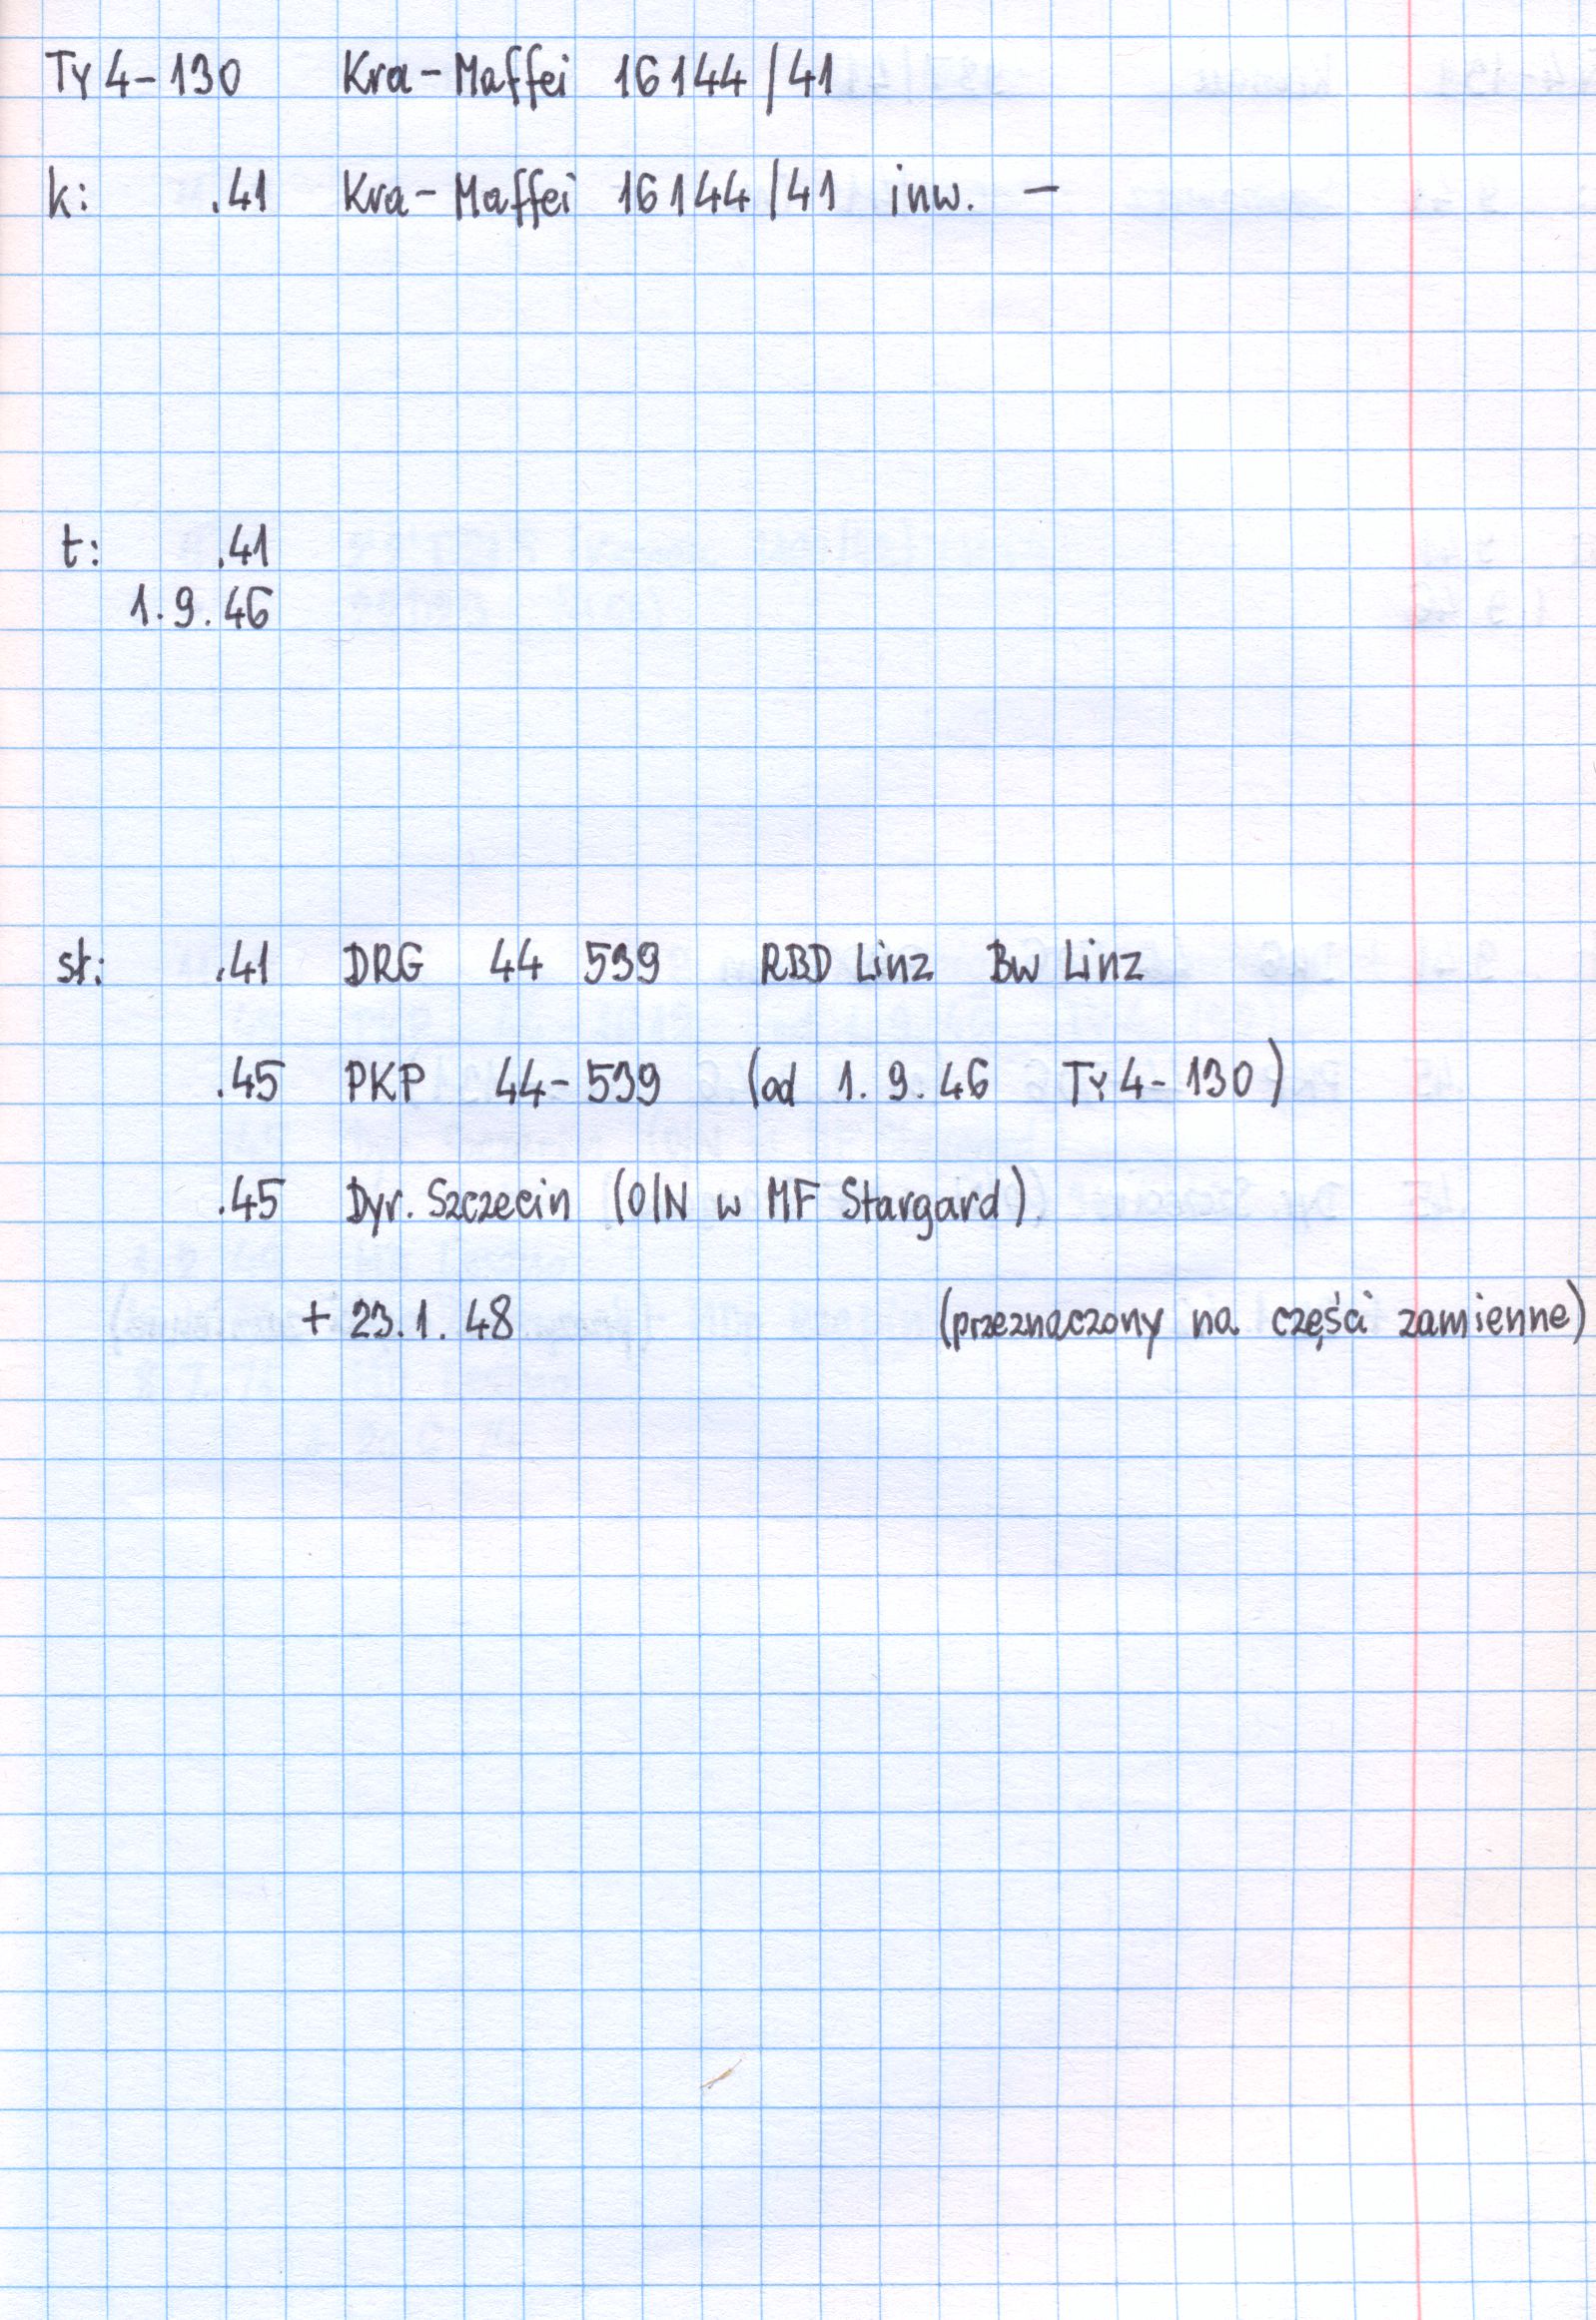 Ty4-130 Kra-Maffei 16144/41
k: .41 Kra-Maffei 16144/41 inw. –
t: .41
1.9.46
st: .41 DRG 44 539 RBD Linz Bw Linz
.45 PKP 44-539 (od 1.9.46 Ty4-130)
.45 Dyr. Szczecin (O/N w MF Stargard)
+ 23.1.48 (przeznaczony na części zamienne)